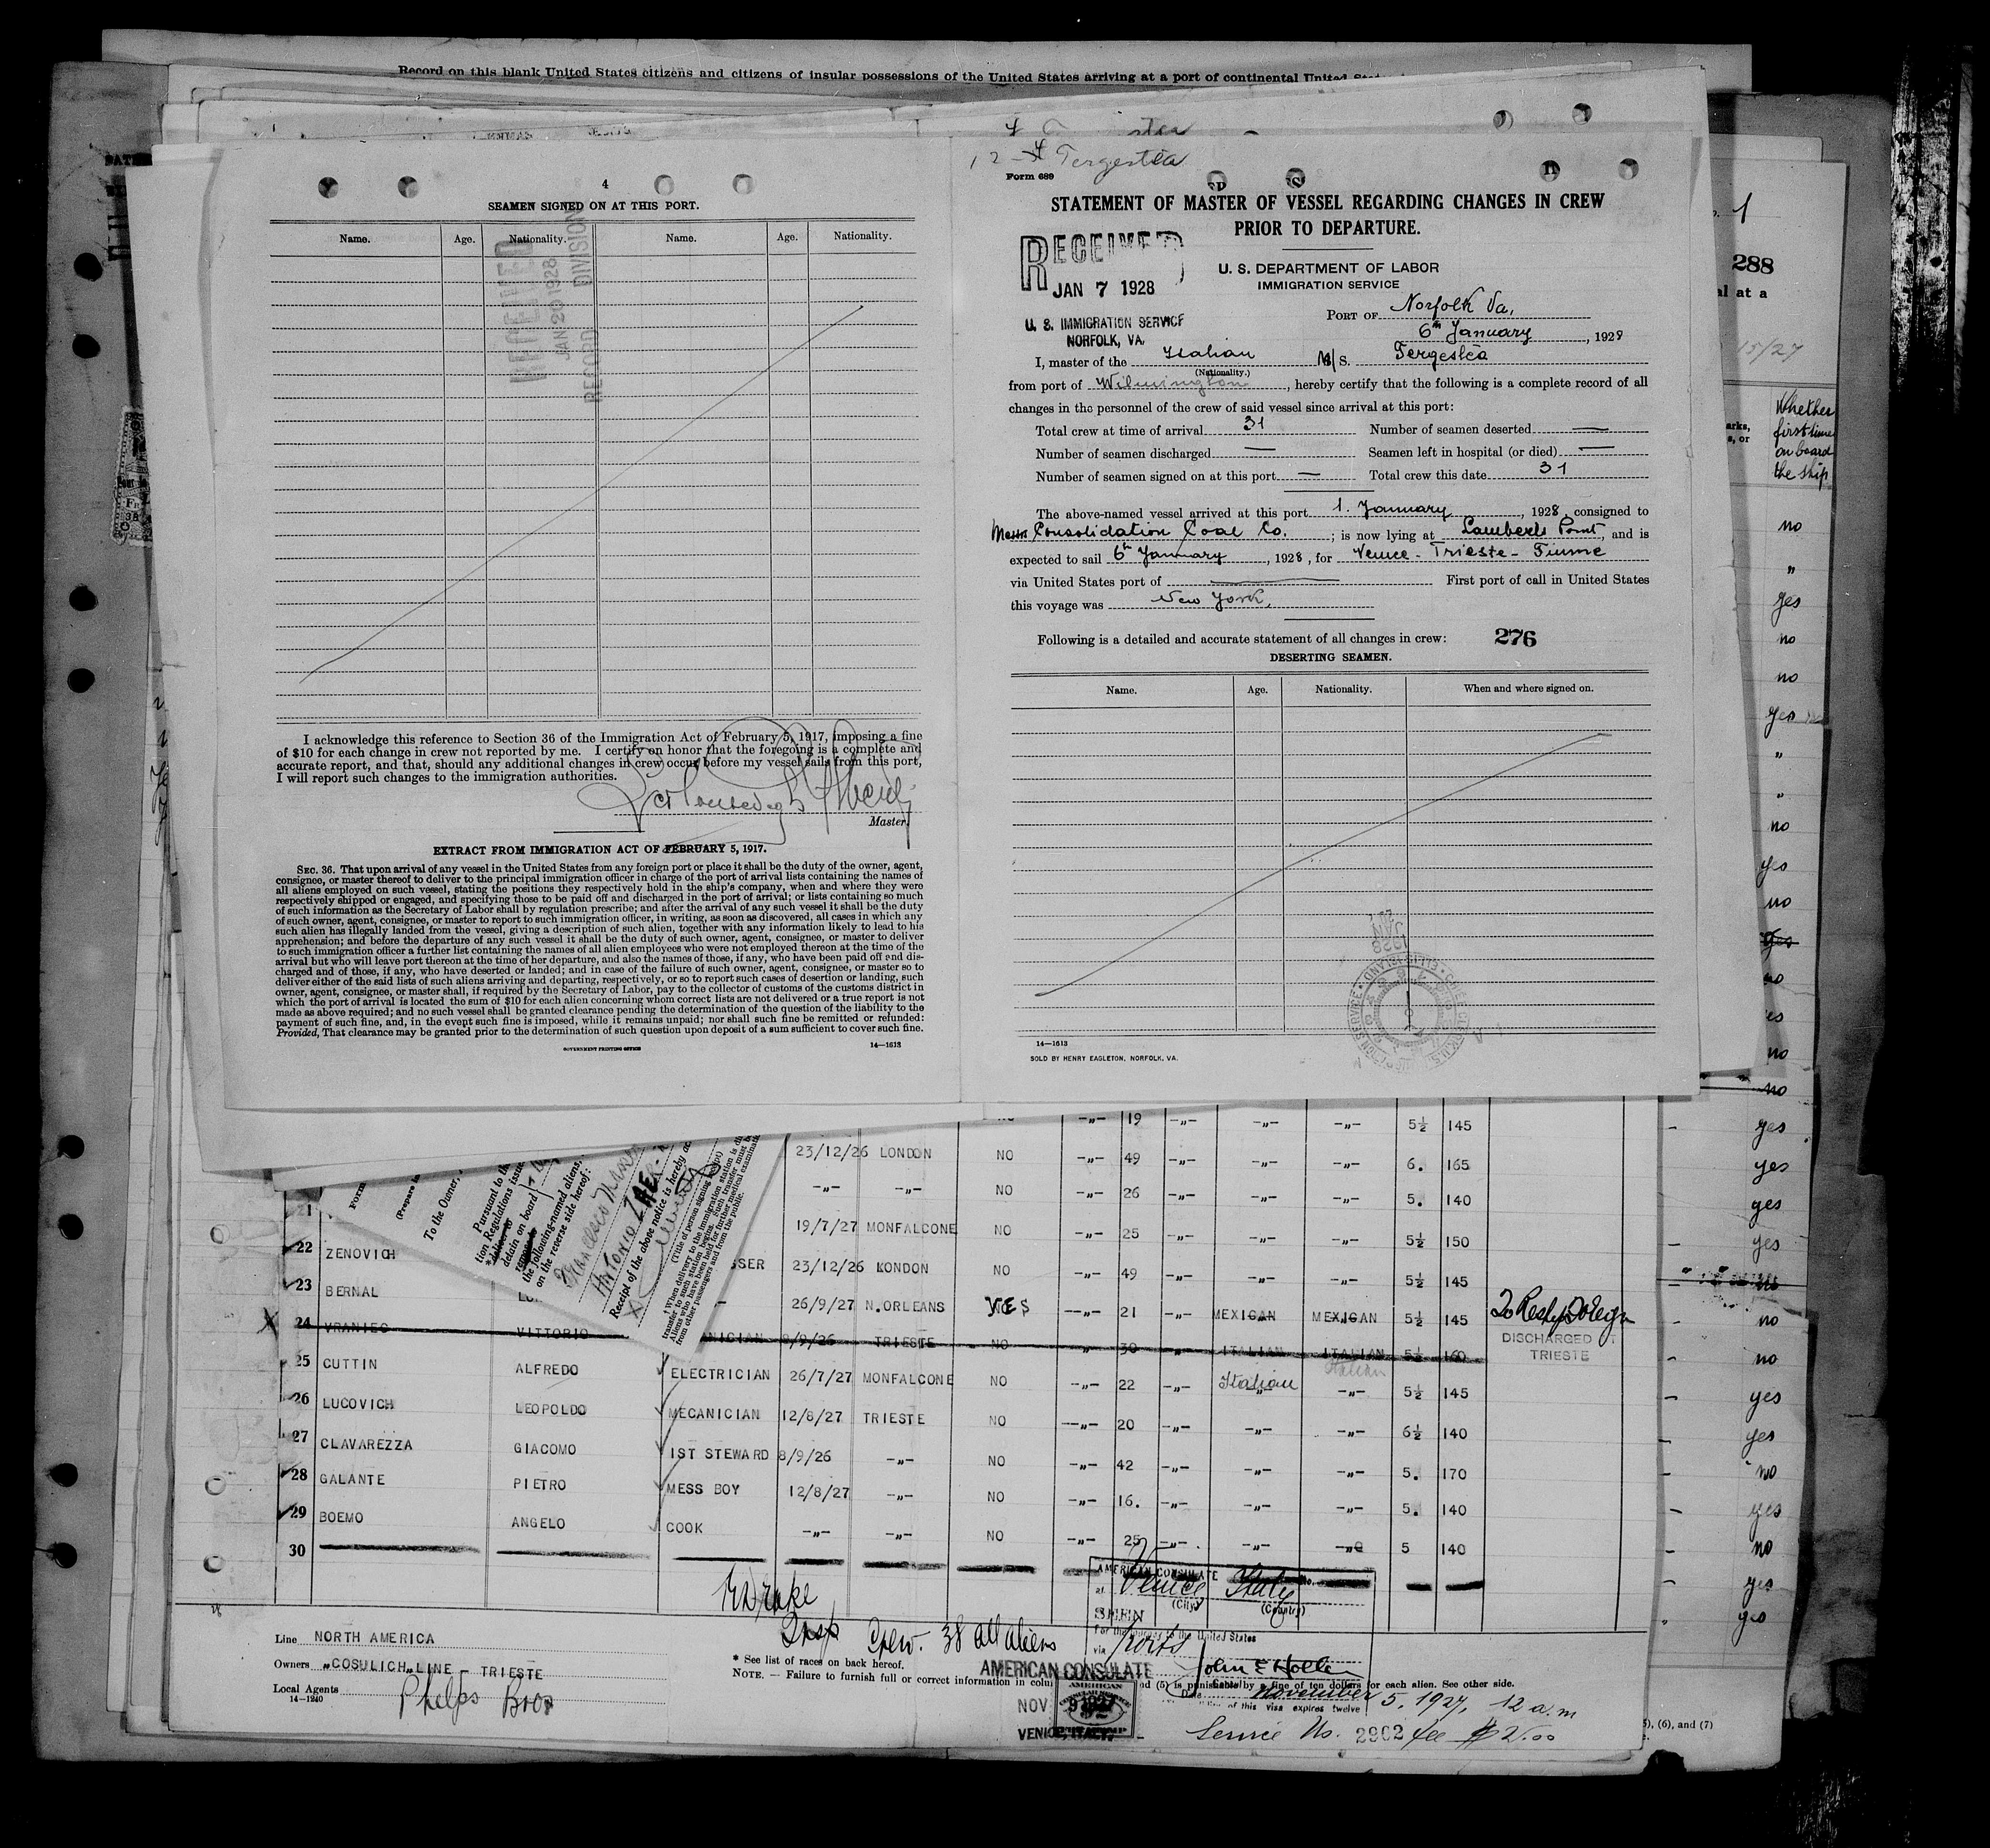 Record on this blank United States citizens and citizens of insular possessions of the United States arriving at a port of continental United
4
SEAMEN SIGNED ON AT THIS PORT.
Name. Age. Nationality. Name. Age. Nationality.
JAN 20 1928
RECORD DIVISION
I acknowledge this reference to Section 36 of the Immigration Act of February 5, 1917, imposing a fine
of $10 for each change in crew not reported by me. I certify on honor that the foregoing is a complete and
accurate report, and that, should any additional changes in crew occur before my vessel sails from this port,
I will report such changes to the immigration authorities.
Master.
EXTRACT FROM IMMIGRATION ACT OF FEBRUARY 5, 1917.
SEC. 36. That upon arrival of any vessel in the United States from any foreign port or place it shall be the duty of the owner, agent,
consignee, or master thereof to deliver to the principal immigration officer in charge of the port of arrival lists containing the names of
all aliens employed on such vessel, stating the positions they respectively hold in the ship's company, when and where they were
respectively shipped or engaged, and specifying those to be paid off and discharged in the port of arrival; or lists containing so much
of such information as the Secretary of Labor shall by regulation prescribe; and after the arrival of any such vessel it shall be the duty
of such owner, agent, consignee, or master to report to such immigration officer, in writing, as soon as discovered, all cases in which any
such alien has illegally landed from the vessel, giving a description of such alien, together with any information likely to lead to his
apprehension; and before the departure of any such vessel it shall be the duty of such owner, agent, consignee, or master to deliver
to such immigration officer a further list containing the names of all alien employees who were not employed thereon at the time of the
arrival but who will leave port thereon at the time of her departure, and also the names of those, if any, who have been paid off and dis-
charged and of those, if any, who have deserted or landed; and in case of the failure of such owner, agent, consignee, or master so to
deliver either of the said lists of such aliens arriving and departing, respectively, or so to report such cases of desertion or landing, such
owner, agent, consignee, or master shall, if required by the Secretary of Labor, pay to the collector of customs of the customs district in
which the port of arrival is located the sum of $10 for each alien concerning whom correct lists are not delivered or a true report is not
made as above required; and no such vessel shall be granted clearance pending the determination of the question of the liability to the
payment of such fine, and, in the event such fine is imposed, while it remains unpaid; nor shall such fine be remitted or refunded:
Provided, That clearance may be granted prior to the determination of such question upon deposit of a sum sufficient to cover such fine.
GOVERNMENT PRINTING OFFICE 14—1613
Tergestea
Form 689
STATEMENT OF MASTER OF VESSEL REGARDING CHANGES IN CREW
PRIOR TO DEPARTURE.
RECEIVED
JAN 7 1928
U. S. IMMIGRATION SERVICE
NORFOLK, VA.
U. S. DEPARTMENT OF LABOR
IMMIGRATION SERVICE
PORT OF Norfolk Va,
6th January, 1928
I, master of the Italian M/S. Tergestea
(Nationality.)
from port of Wilmington, hereby certify that the following is a complete record of all
changes in the personnel of the crew of said vessel since arrival at this port:
Total crew at time of arrival 31 Number of seamen deserted —
Number of seamen discharged — Seamen left in hospital (or died) —
Number of seamen signed on at this port — Total crew this date 31
The above-named vessel arrived at this port 1. January, 1928, consigned to
Messrs Consolidation Coal Co.; is now lying at Lamberts Point, and is
expected to sail 6th January, 1928, for Venice - Trieste - Fiume
via United States port of — First port of call in United States
this voyage was New York,
Following is a detailed and accurate statement of all changes in crew: 276
DESERTING SEAMEN.
Name. Age. Nationality. When and where signed on.
14—1613
SOLD BY HENRY EAGLETON, NORFOLK, VA.
1
288
al at a
15/27
Whether
first time
on board
the ship
no
"
yes
no
no
yes
"
"
no
yes
no
yes
no
yes
no
no
yes
yes
yes
yes
no
no
no
yes
yes
no
yes
no
yes
yes
To the Owner,
Pursuant to th
tion Regulations issue
detain on board
the following-named aliens,
on the reverse side hereof:
Antonio
Receipt of the above notice is hereby ac
(Title of person signing receipt)
—„— 19 —„— —„— —„— 5½ 145
23/12/26 LONDON NO —„— 49 —„— —„— —„— 6. 165
21 —„— —„— NO —„— 26 —„— —„— —„— 5. 140
22 ZENOVICH 19/7/27 MONFALCONE NO —„— 25 —„— —„— —„— 5½ 150
23 BERNAL SSER 23/12/26 LONDON NO —„— 49 —„— —„— —„— 5½ 145
26/9/27 N.ORLEANS YES —„— 21 —„— MEXICAN MEXICAN 5½ 145
24 VRANIEC VITTORIO 8/9/26 TRIESTE NO " 30 " ITALIAN ITALIAN 5½ 160
DISCHARGED AT
TRIESTE
25 CUTTIN ALFREDO ELECTRICIAN 26/7/27 MONFALCONE NO —„— 22 —„— Italian —„— 5½ 145
26 LUCOVICH LEOPOLDO MECANICIAN 12/8/27 TRIESTE NO —„— 20 —„— —„— —„— 6½ 140
27 CLAVAREZZA GIACOMO 1ST STEWARD 8/9/26 —„— NO —„— 42 —„— —„— —„— 5. 170
28 GALANTE PIETRO MESS BOY 12/8/27 —„— NO —„— 16. —„— —„— —„— 5. 140
29 BOEMO ANGELO COOK —„— —„— NO —„— 25 —„— —„— —„— 5 140
30
Drake
Insp Crew. 38 all aliens
AMERICAN CONSULATE
at Venice Italy
(City) (Country)
SEEN
For the journey to the United States
via ports
John E Holler
Line NORTH AMERICA
Owners „COSULICH„ LINE TRIESTE
Local Agents Phelps Bros
14—1240
* See list of races on back hereof.
NOTE. — Failure to furnish full or correct information in colu nd (5) is punishable by a fine of ten dollars for each alien. See other side.
AMERICAN CONSULATE
NOV 9 1927
VENICE, ITALY.
Date November 5, 1927, 12 a.m
of this visa expires twelve
Service No. 2902 fee $ 2.00
), (6), and (7)